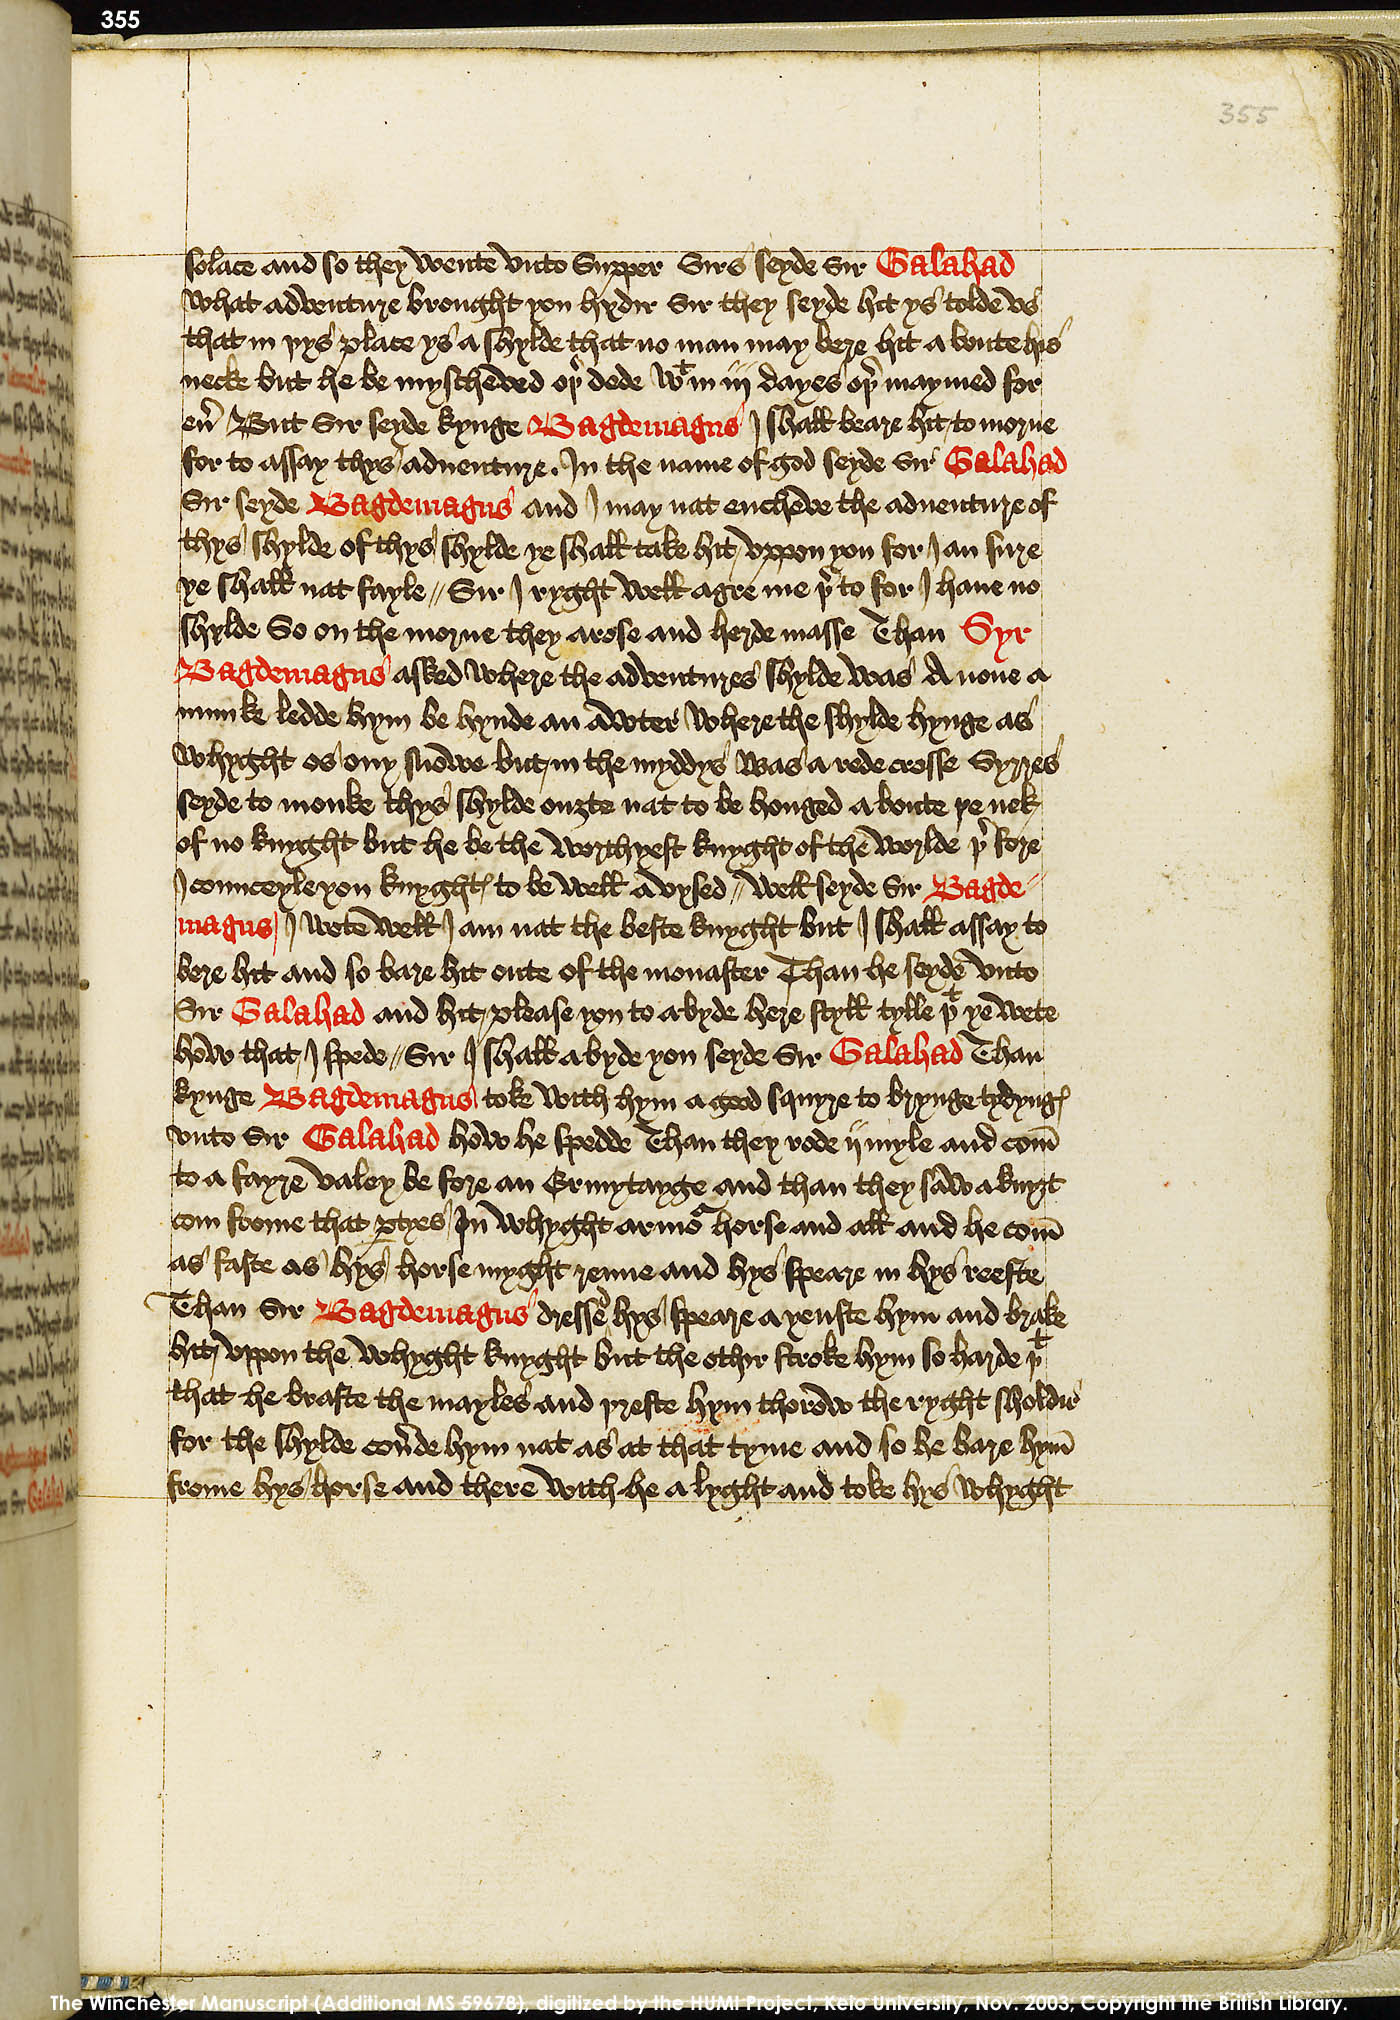 355
355
solace and so they wente vnto Supper Sirs seyde Sir Galahad
what adventure brought you hydir Sir they seyde hit ys tolde vs
that in þys place ys a shylde that no man may bere hit a boute hys
necke but he be myscheved oþ̉ dede wᵗin iij dayes oþ̉ maymed for
eỽ But Sir seyde kynge Bagdemagus I shall beare hit to morne
for to assay thys aduenture. In the name of god seyde Sir Galahad
Sir seyde Bagdemagus and I may nat encheve the aduenture of
thys shylde of thys shylde ye shall take hit vppon you for I am sure
ye shall nat fayle // Sir I ryght well agre me þ̉ to for I haue no
shylde So on the morne they arose and herde masse Than Syr
Bagdemagus asked where the adventures shylde was A none a
munke ledde hym be hynde an awter where the shylde hynge as
whyght os ony snowe but in the myddys was a rede crosse Syrres
seyde to monke thys shylde ouzte nat to be honged a boute þe nek
of no knyght but he be the worthyest knyght of the worlde þ̉ fore
I counceyle you knyghtꝭ to be well a vysed // well seyde Sir Bagde
magus I wote well I am nat the beste knyght but I shall assay to
bere hit and so bare hit oute of the monaster Than he seyde vnto
Sir Galahad and hit please you to a byde here styll tylle þᵗ ye wete
how that I spede // Sir I shall a byde you seyde Sir Galahad Than
kynge Bagdemagus toke with hym a good squyre to brynge tydyngꝭ
vnto Sir Galahad how he spedde Than they rode ij myle and com̄
to a fayre valey be fore an Ermytayge and than they saw a knyȝt
com frome that ꝑtyes In whyght armoʳ horse and all and he com̄
as faste as hys horse myght renne and hys speare in hys reeste
Than Sir Bagdemagus dresseᵈ hys speare ayenste hym and brake
hit vppon the whyght knyght but the othir stroke hym so harde þᵗ
that he braste the mayles and preste hym thorow the ryght sholdir
for the shylde coỽde hym nat as at that tyme and so he bare hym̄
frome hys horse and there with he a lyght and toke hys whyght
The Winchester Manuscript (Additional MS 59678), digitized by the HUMI Project, Keio University, Nov. 2003; Copyright the British Library.